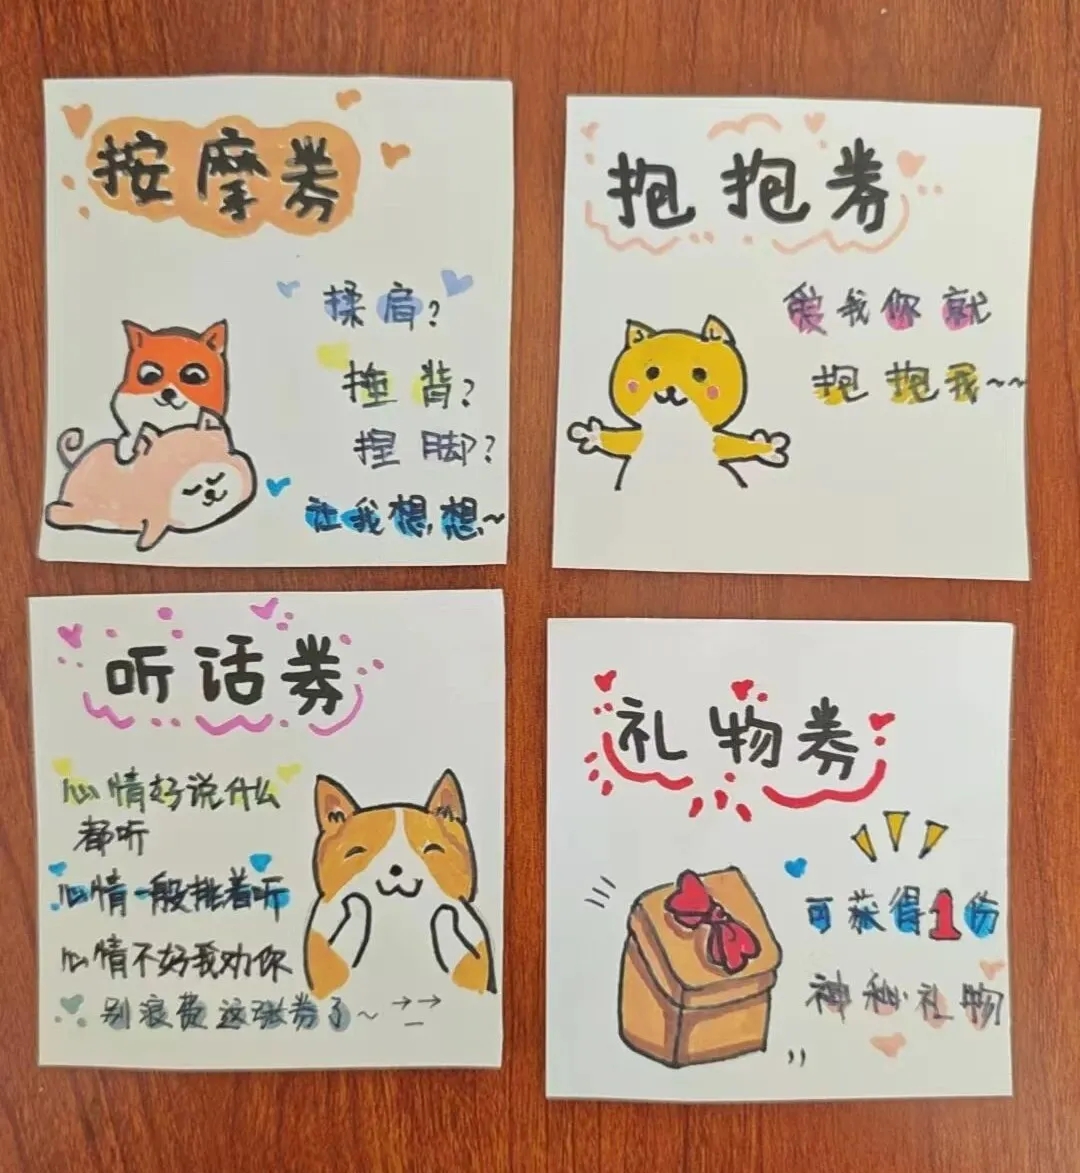 按摩券
揉肩?
捶背?
捏脚?
让我想想~
抱抱券
爱我你就
抱抱我~~
听话券
心情好说什么
都听
心情一般挑着听
心情不好我劝你
别浪费这张券了~
礼物券
可获得1份
神秘礼物